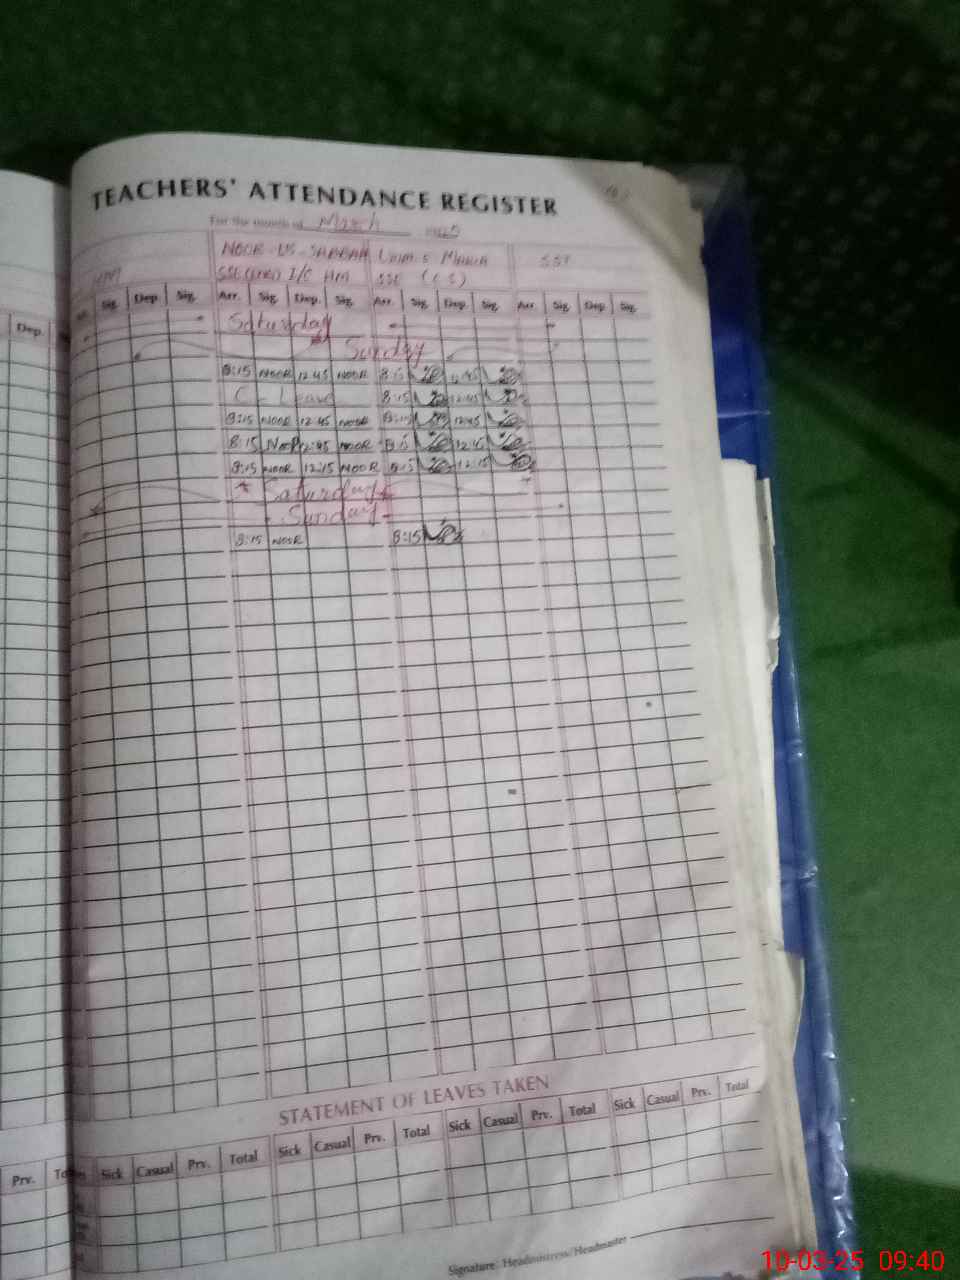 TEACHERS' ATTENDANCE REGISTER
For the month of March
NOOR-US-SABBAH
SSE I/C HM SSE (CS) SST
HM
Sig. Dep Sig. Arr. Sig. Dep. Sig. Arr. Sig. Dep. Sig. Arr. Sig. Dep. Sig.
Dep.
Saturday
Sunday
8:15 NOOR 12:45 NOOR 8:15 12:45
C - Leave 8:15 12:45
8:15 NOOR 12:45 NOOR 8:15 12:45
8:15 NOOR 12:45 NOOR 8:15 12:45
8:15 NOOR 12:15 NOOR 8:15 12:15
Saturday
Sunday
8:15 NOOR 8:15
STATEMENT OF LEAVES TAKEN
Prv. Sick Casual Prv. Total Sick Casual Prv. Total Sick Casual Prv. Total Sick Casual Prv. Total
Signature: Headmistress/Headmaster
10-03-25 09:40